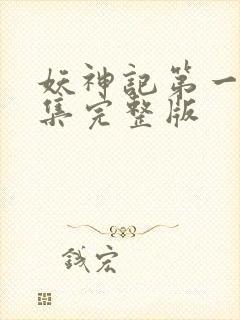 妖神記第一
集完整版
錢宏